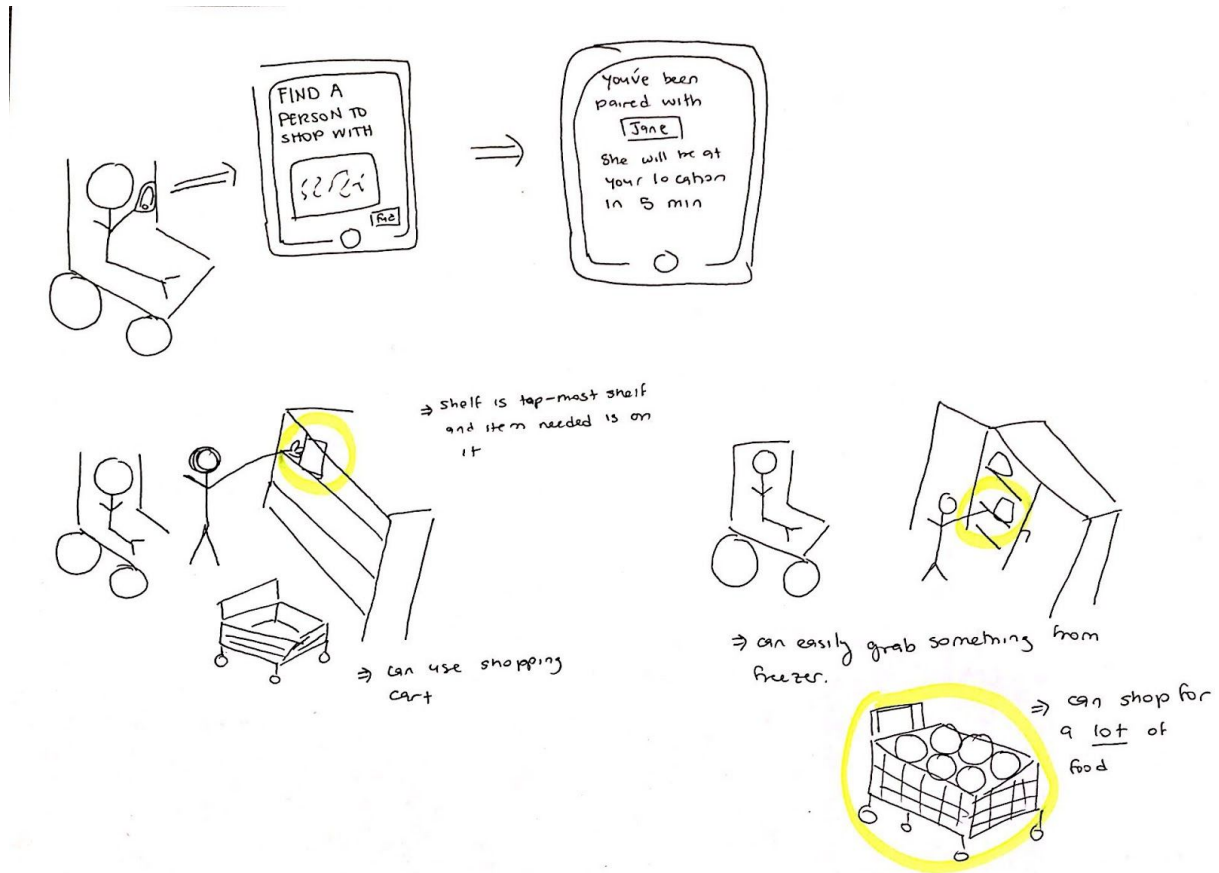 FIND A
PERSON TO
SHOP WITH
You've been
paired with
Jane
She will be at
your location
in 5 min
⇒ shelf is top-most shelf
and item needed is on
it
⇒ can use shopping
cart
⇒ can easily grab something from
freezer.
⇒ can shop for
a lot of
food